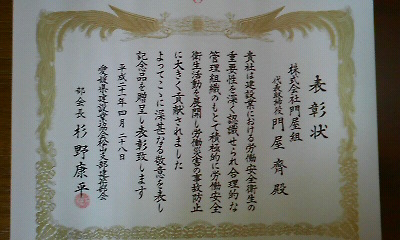 表彰状
株式会社門屋組
代表取締役 門屋齊殿
貴社は建設業における労働安全衛生の
重要性を深く認識せられ合理的な
管理組織のもとで積極的に労働安全
衛生活動を展開し労働災害の事故防止
に大きく貢献されました
よってここに深甚なる敬意を表し
記念品を贈呈し表彰致します
平成二十一年四月二十八日
愛媛県建設業協会松山支部建築部会
部会長 杉野康平